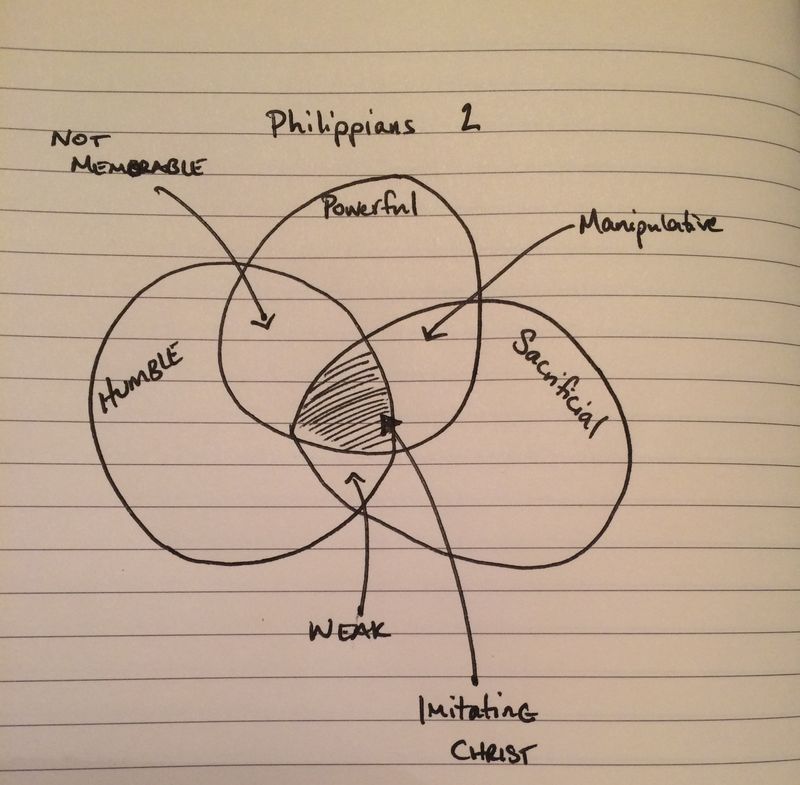 Philippians 2
NOT
MEMORABLE
Powerful
Manipulative
HUMBLE
Sacrificial
WEAK
Imitating
CHRIST